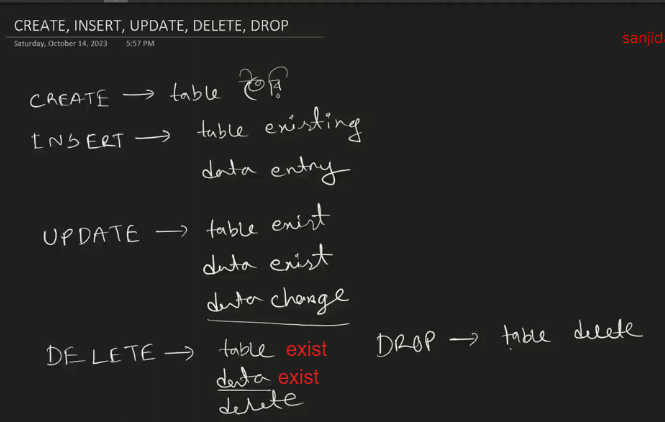 CREATE, INSERT, UPDATE, DELETE, DROP
Saturday, October 14, 2023 5:57 PM
sanjid
CREATE → table তৈরি
INSERT → table existing
data entry
UPDATE → table exist
data exist
data change
DELETE → table exist
data exist
delete
DROP → table delete